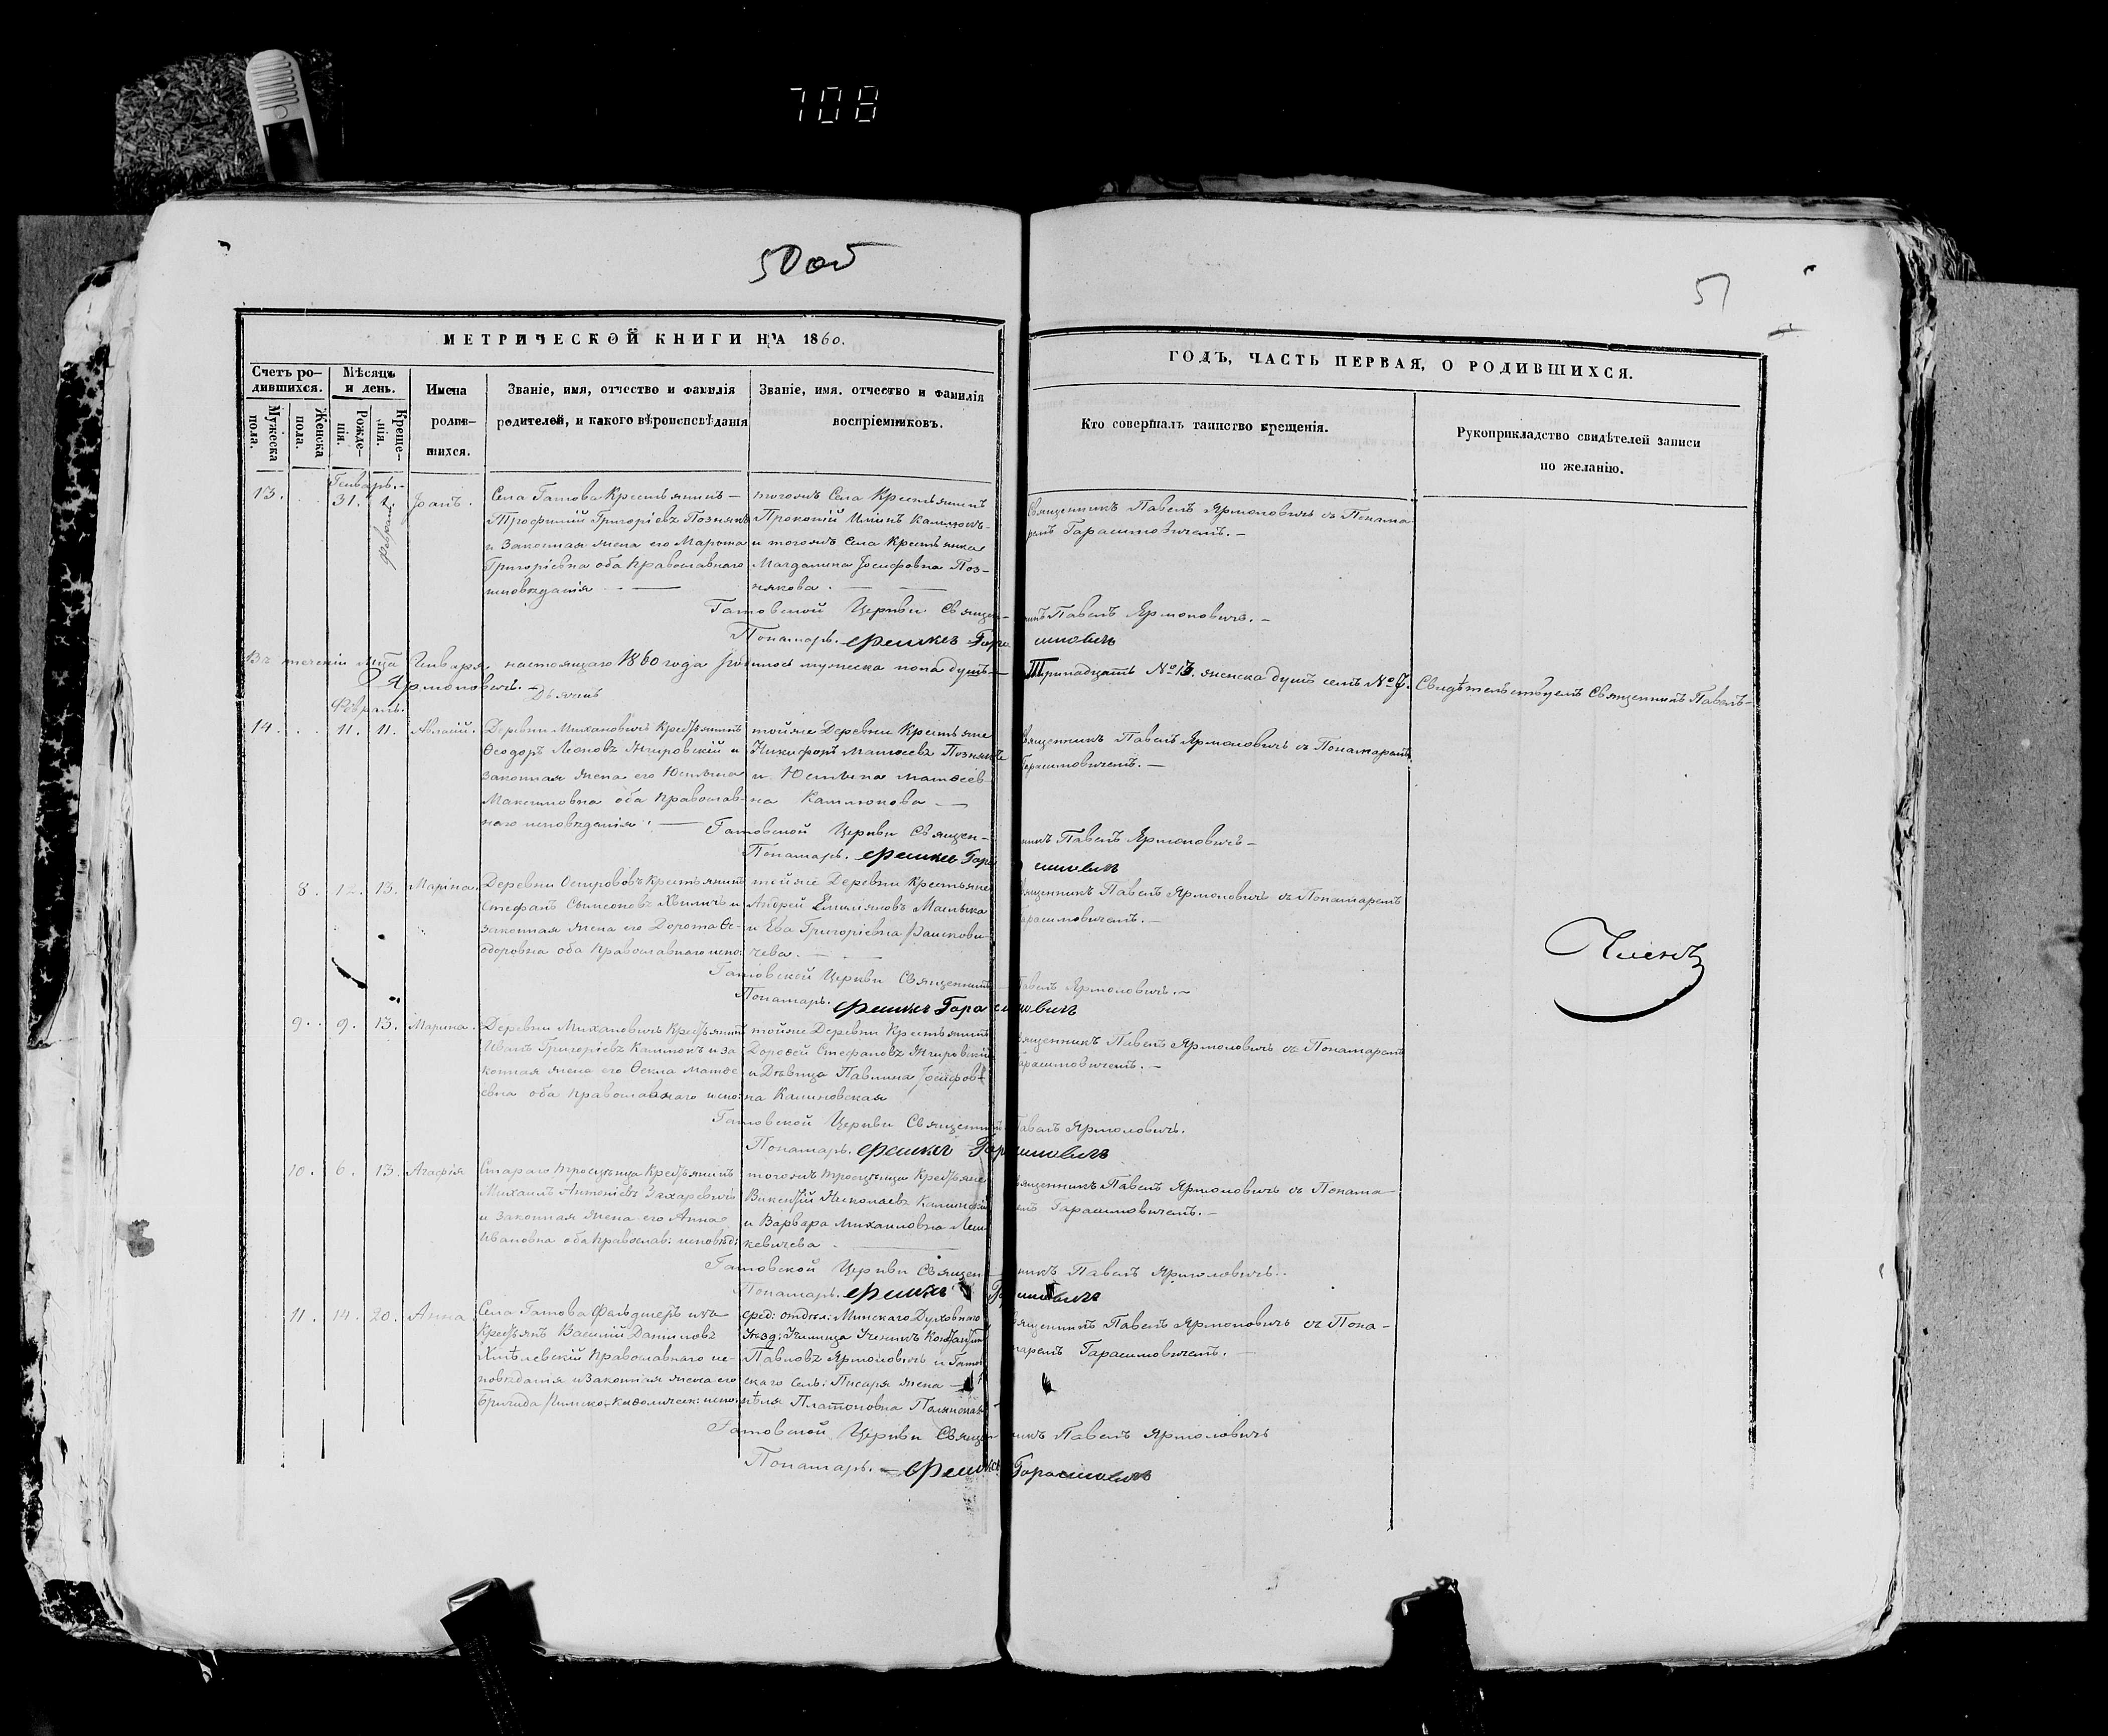 708
50 об
51
МЕТРИЧЕСКОЙ КНИГИ НА 1860.
ГОДЪ, ЧАСТЬ ПЕРВАЯ, О РОДИВШИХСЯ.
Счетъ ро-
дившихся.
Мужеска
пола.
Женска
пола.
Мѣсяцъ
и день.
Рожде-
нія.
Креще-
нія.
Имена
родив-
шихся.
Званіе, имя, отчество и фамилія
родителей, и какого вѣроисповѣданія
Званіе, имя. отчество и фамилія
воспріемниковъ.
Кто совершалъ таинство крещенія.
Рукоприкладство свидѣтелей записи
по желанію.
Генварь.
13. 31. 1. Февраля Іоанъ.
Села Гатова Крестьянинъ —
Трофимій Григоріевъ Познякъ
и Законная жена его Марѳта
Григоріевна оба Православнаго
исповѣданія
тогожъ Села Крестьянинъ
Прокопій Ильинъ Каплюкъ
и тогожъ Села Крестьянка
Магдалина Іосифовна Поз-
някова.
Священникъ Павелъ Ярмоловичъ съ Понама-
ремъ Гарасимовичемъ. —
Гатовской Церкви Священ-никъ Павелъ Ярмоловичъ. —
Понамарь. Фешкевъ Гарасимовичъ
Въ теченіи Мца Генваря, настоящаго 1860 года родилось мужеска пола душъ — Тринадцать № 13. женска душъ семь № 7. Свидѣтельствуемъ Священникъ Павелъ —
Ярмоловичъ. —
Февраль.
14. 11. 11. Авласій.
Деревни Михановичъ Крестьянинъ
Ѳеодоръ Леоновъ Жировскій и
законная жена его Юстина
Максимовна оба Православ-
наго исповѣданія. —
тойже Деревни Крестьяне
Никифоръ Матѳеевъ Познякъ
и Юстина Матѳеев-
на Каплюкова —
Священникъ Павелъ Ярмоловичъ съ Понамаремъ
Герасимовичемъ. —
Гатовской Церкви Священ-никъ Павелъ Ярмоловичъ —
Понамарь. Фешкевъ Гарасимовичъ
8. 12. 13. Маріна.
Деревни Островокъ Крестьянинъ
Стефанъ Сымеоновъ Хвиличъ и
законная жена его Дорота Ѳе-
одоровна оба Православнаго испо:
тойже Деревни Крестьяне
Андрей Емиліяновъ Маслыка
и Ева Григоріевна Рашкови-
чева. —
Священникъ Павелъ Ярмоловичъ съ Понамаремъ
Гарасимовичемъ. —
Гатовской Церкви Священникъ Павелъ Ярмоловичъ. —
Понамарь. Фешкевъ Гарасимовичъ
9. 9. 13. Марина.
Деревни Михановичъ Крестьянинъ
Иванъ Григоріевъ Каплюкъ и за-
конная жена его Ѳекла Матѳе-
евна оба Православнаго испо:
тойже Деревни Крестьянинъ
Дороѳей Стефановъ Жировскій
и Дѣвица Павлина Іосифов-
на Калиновская
Священникъ Павелъ Ярмоловичъ съ Понамаремъ
Гарасимовичемъ. —
Гатовской Церкви Священникъ Павелъ Ярмоловичъ.
Понамарь. Фешкевъ Гарасимовичъ
10. 6. 13. Агафія
Стараго Тросценца Крестьянинъ
Михаилъ Антоніевъ Захаревичъ
и Законная жена его Анна
Ивановна оба Православ: исповѣд:
тогожъ Тросценца Крестьяне
Викентій Николаевъ Калиновскій
и Варвара Михаиловна Леш-
кевичева
Священникъ Павелъ Ярмоловичъ съ Понама-
ремъ Гарасимовичемъ. —
Гатовской Церкви Священникъ Павелъ Ярмоловичъ.
Понамарь. Фешкевъ Гарасимовичъ
11. 14. 20. Анна.
Села Гатова Фельдшеръ изъ
Крестьянъ Василій Даниловъ
Хмѣлевскій Православнаго ис-
повѣданія и Законная жена его
Бригида Римско-Католическ: испо.
сред: отдѣл: Минскаго Духовнаго
Уѣзд: Училища Ученикъ Константинъ
Павловъ Ярмоловичъ и Гатов-
скаго Сель: Писаря жена —
Платоновна
Священникъ Павелъ Ярмоловичъ съ Пона-
маремъ Гарасимовичемъ. —
Гатовской Церкви Священникъ Павелъ Ярмоловичъ
Понамарь. — Фешкевъ Гарасимовичъ